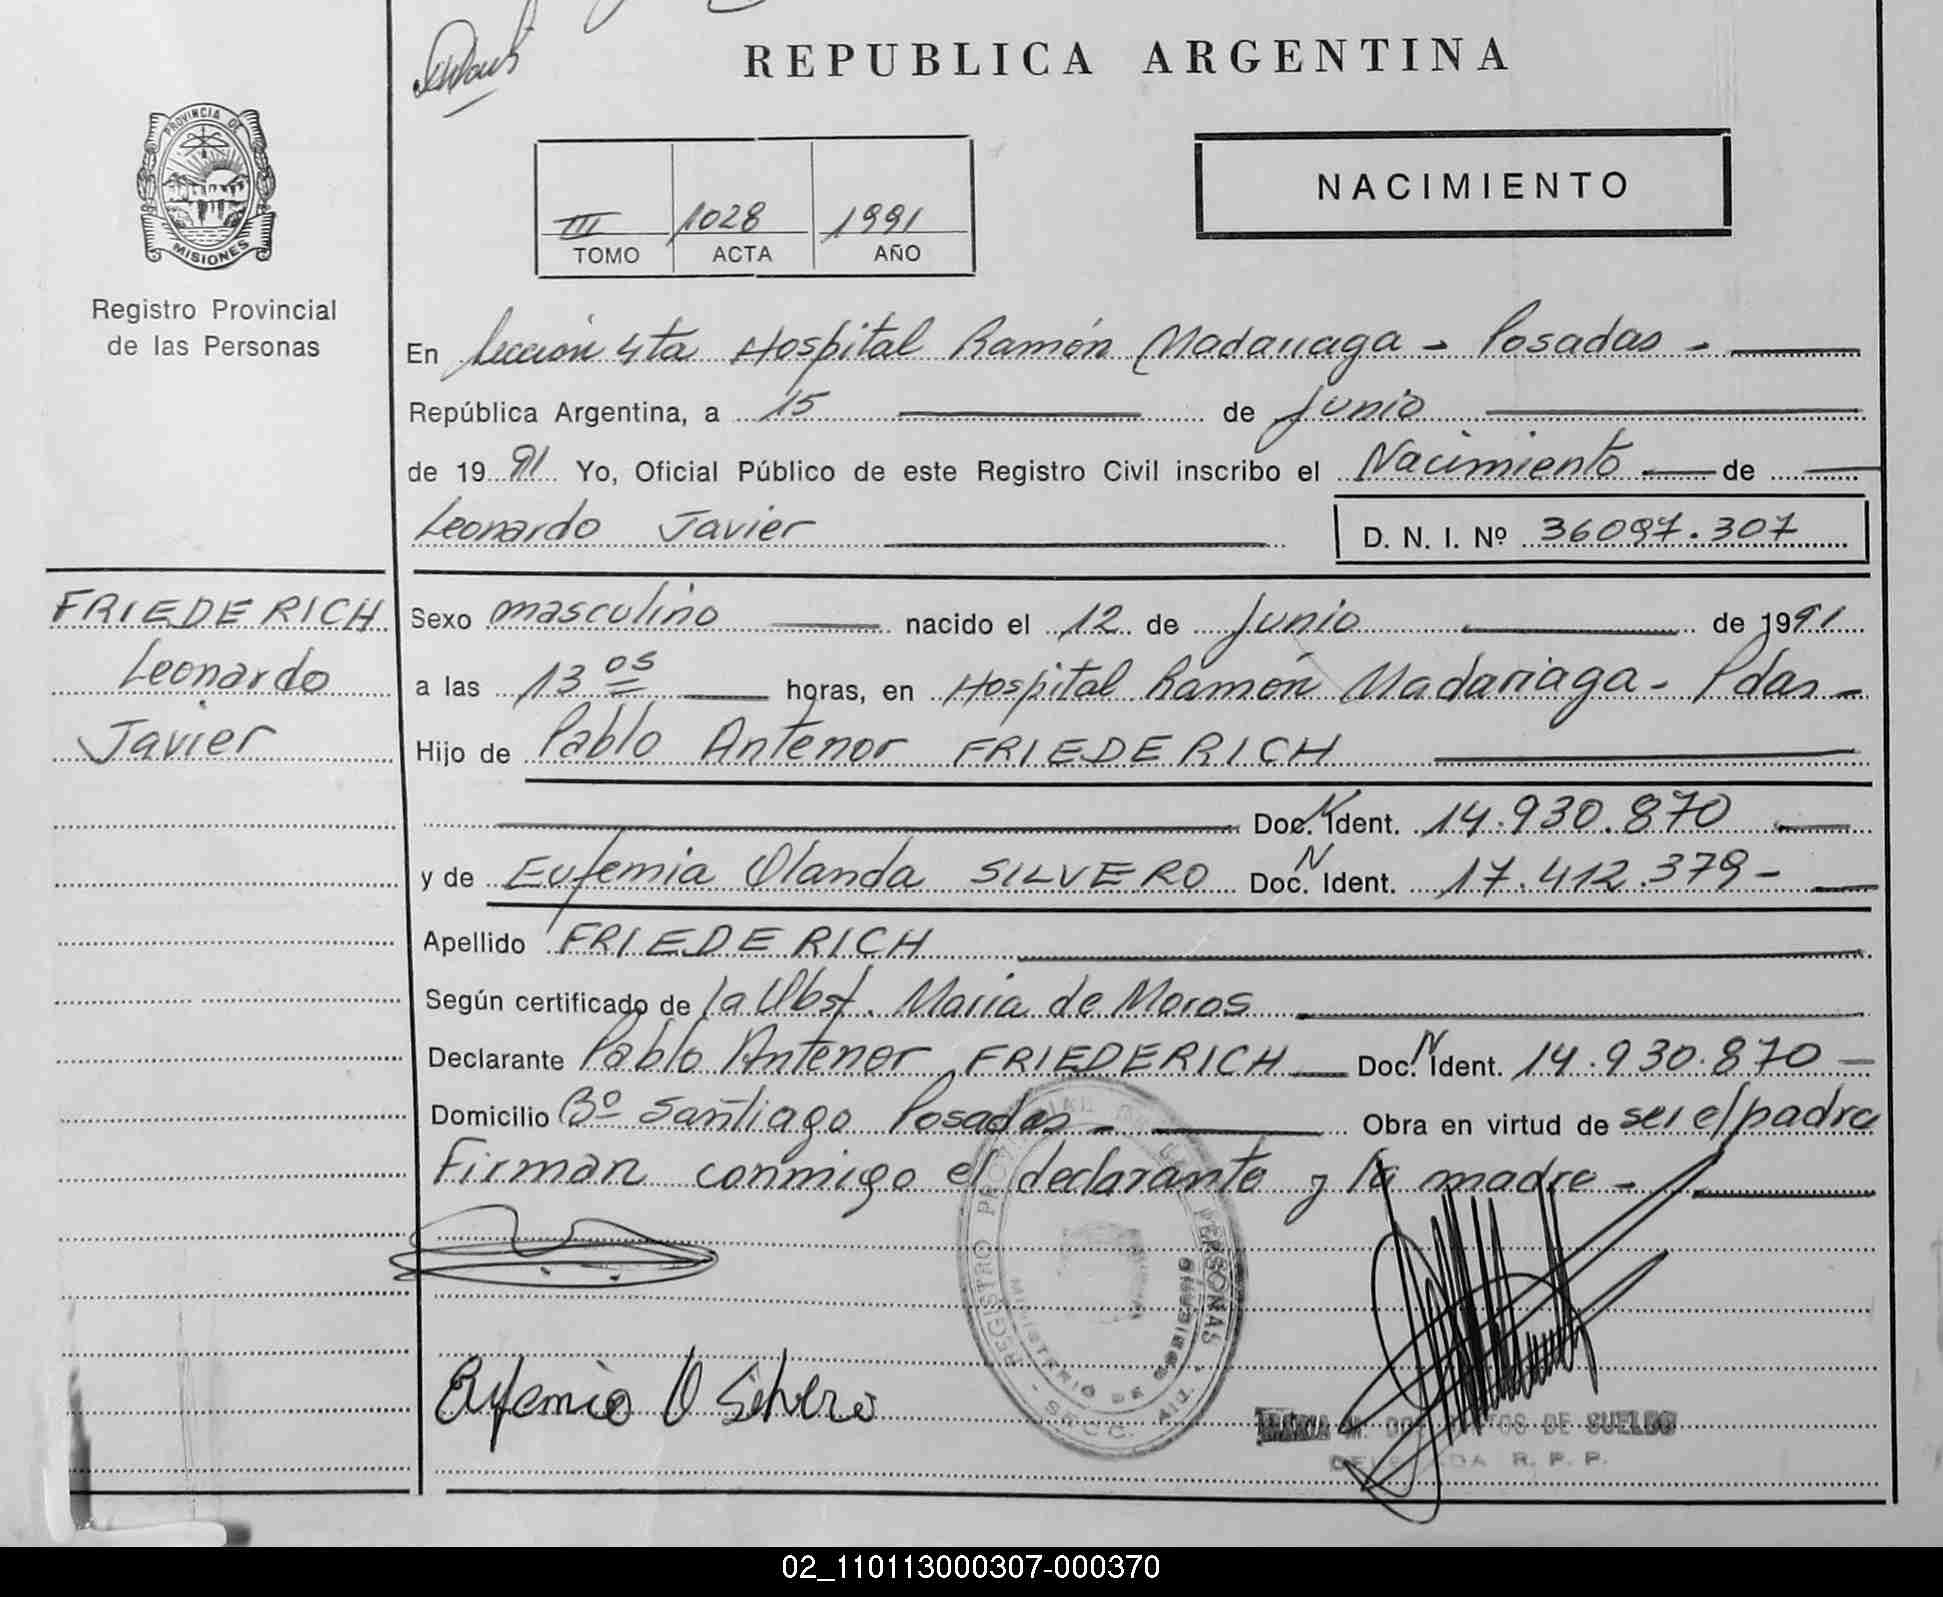 REPUBLICA ARGENTINA
PROVINCIA DE
MISIONES
Registro Provincial
de las Personas
III 1028 1991
TOMO ACTA AÑO
NACIMIENTO
En Sección 4ta Hospital Ramón Madariaga - Posadas -
República Argentina, a 15 de Junio
de 1991 Yo, Oficial Público de este Registro Civil inscribo el Nacimiento de
Leonardo Javier D. N. I. Nº 36097.307
FRIEDERICH
Leonardo
Javier
Sexo masculino nacido el 12 de Junio de 1991
a las 13 05 horas, en Hospital Ramón Madariaga - Pdas -
Hijo de Pablo Antenor FRIEDERICH
Doc. N Ident. 14.930.870
y de Eufemia Olanda SILVERO Doc. N Ident. 17.412.379 -
Apellido FRIEDERICH
Según certificado de la Obst. Maria de Moros
Declarante Pablo Antenor FRIEDERICH Doc. N Ident. 14.930.870
Domicilio Bº Santiago Posadas - Obra en virtud de ser el padre
Firman conmigo el declarante y la madre -
REGISTRO PROVINCIAL DE LAS PERSONAS
MINISTERIO DE GOBIERNO
Eufemia O Silvero
MARIA M. DE SUELDO
DELEGADA R. P. P.
02_110113000307-000370